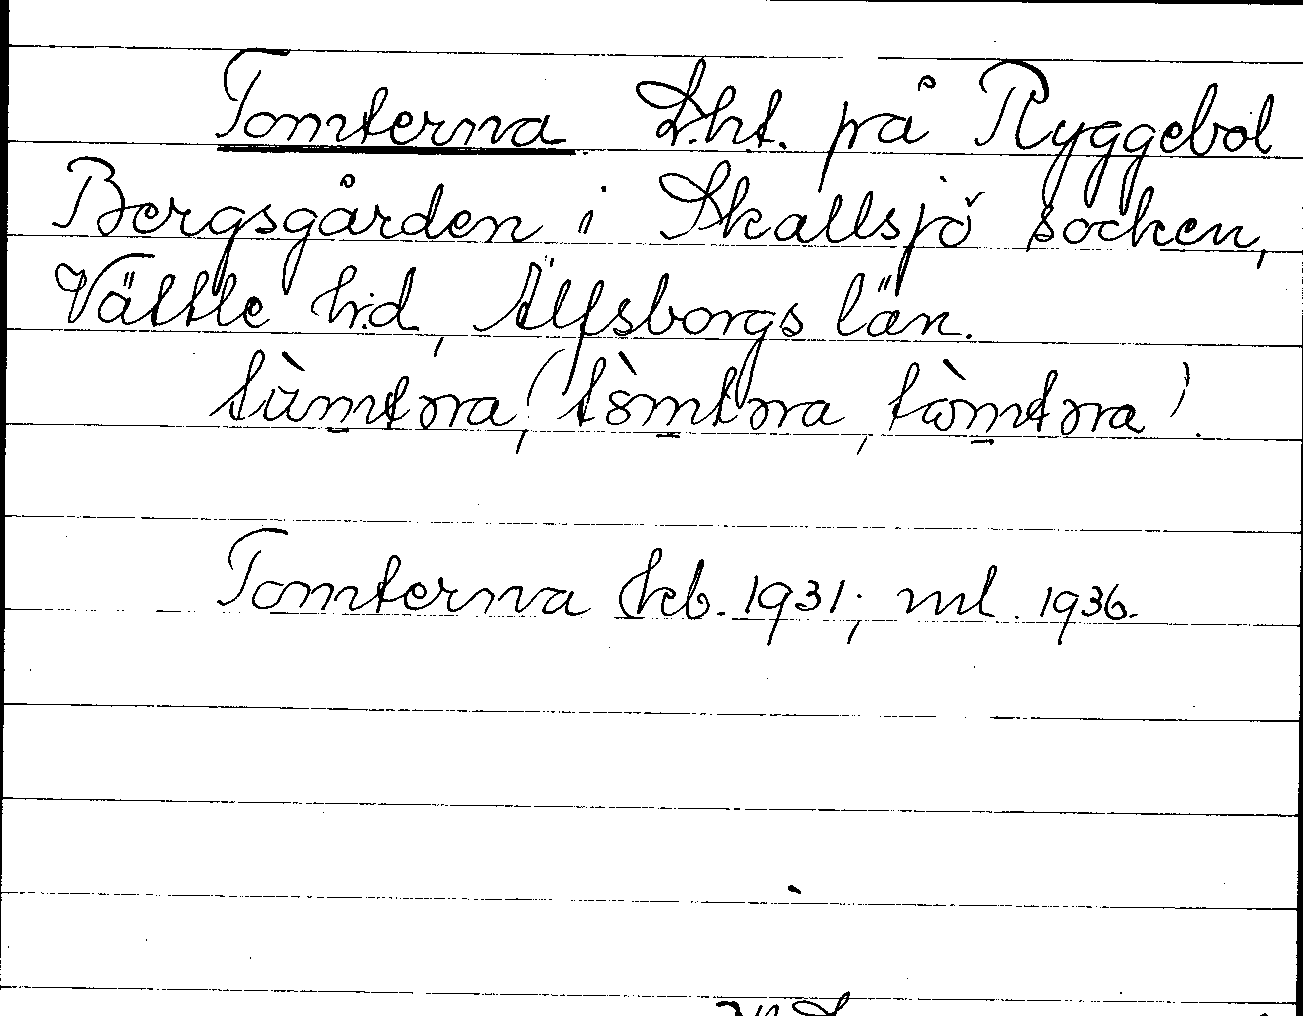 Tomterna Lht. på Ryggebol
Bergsgården i Skallsjö socken,
Vättle hd, Älfsborgs län.
tùmtna, (tòmtna, tòmtna).
Tomterna kb. 1931; ml. 1936.